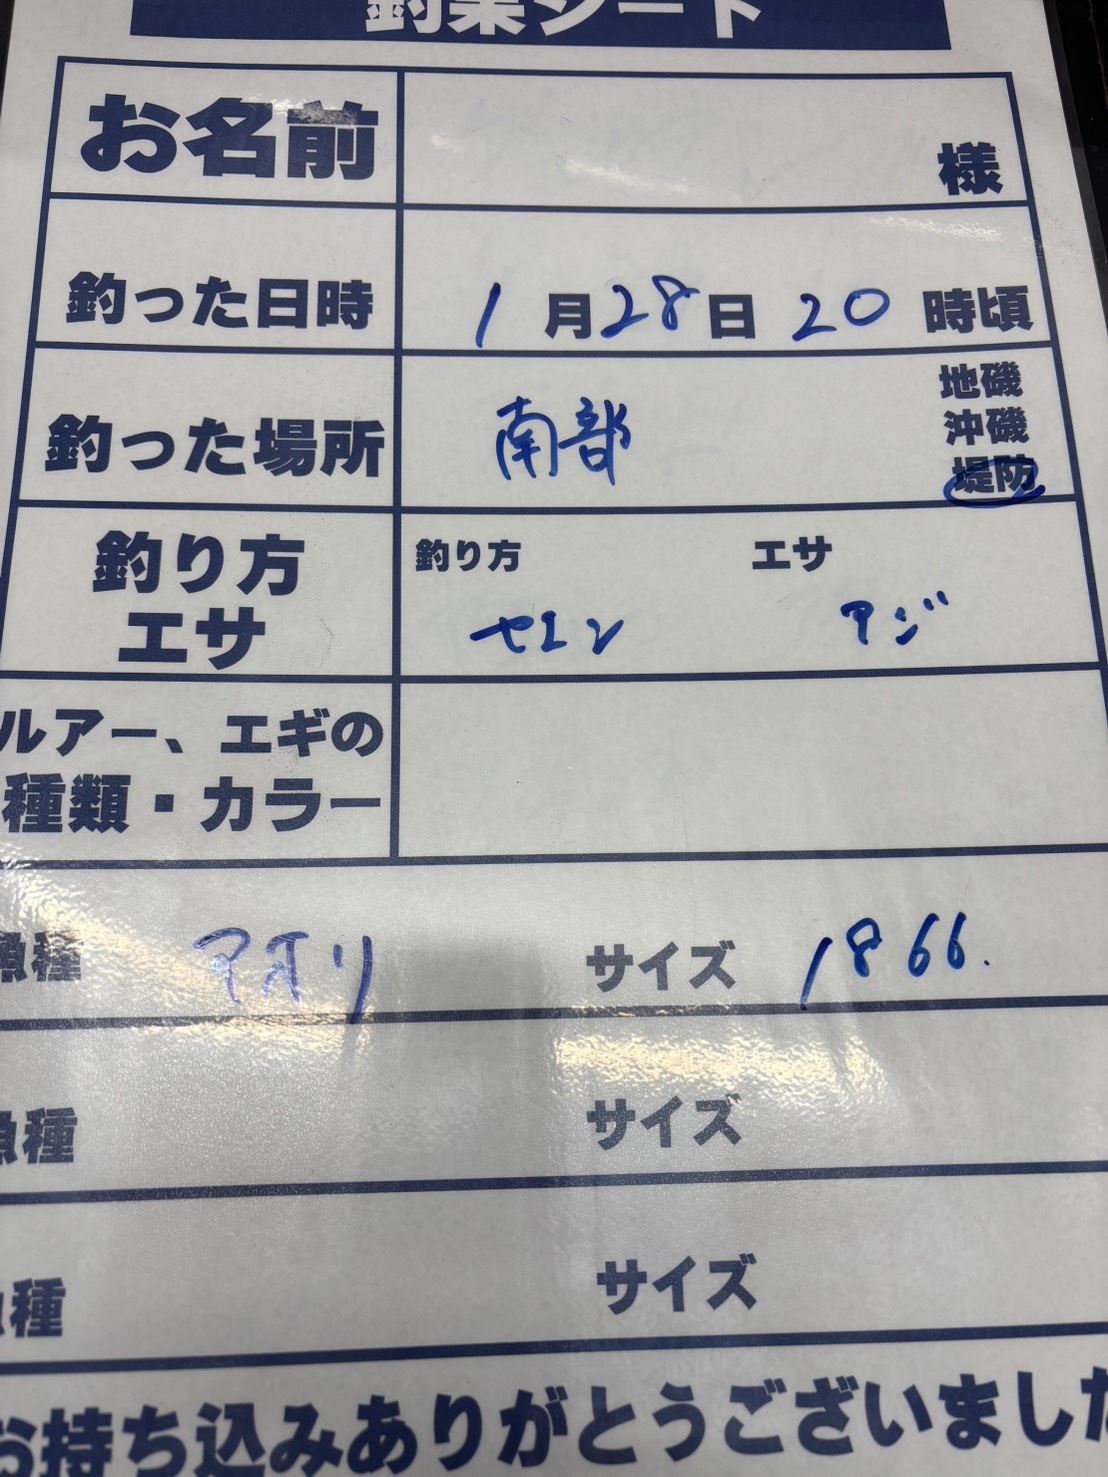 釣果シート
お名前 様
釣った日時 1月28日 20時頃
釣った場所 南部 地磯 沖磯 堤防
釣り方 エサ
釣り方 エサ
ヤエン アジ
ルアー、エギの
種類・カラー
魚種 アオリ サイズ 1866.
魚種 サイズ
魚種 サイズ
お持ち込みありがとうございました